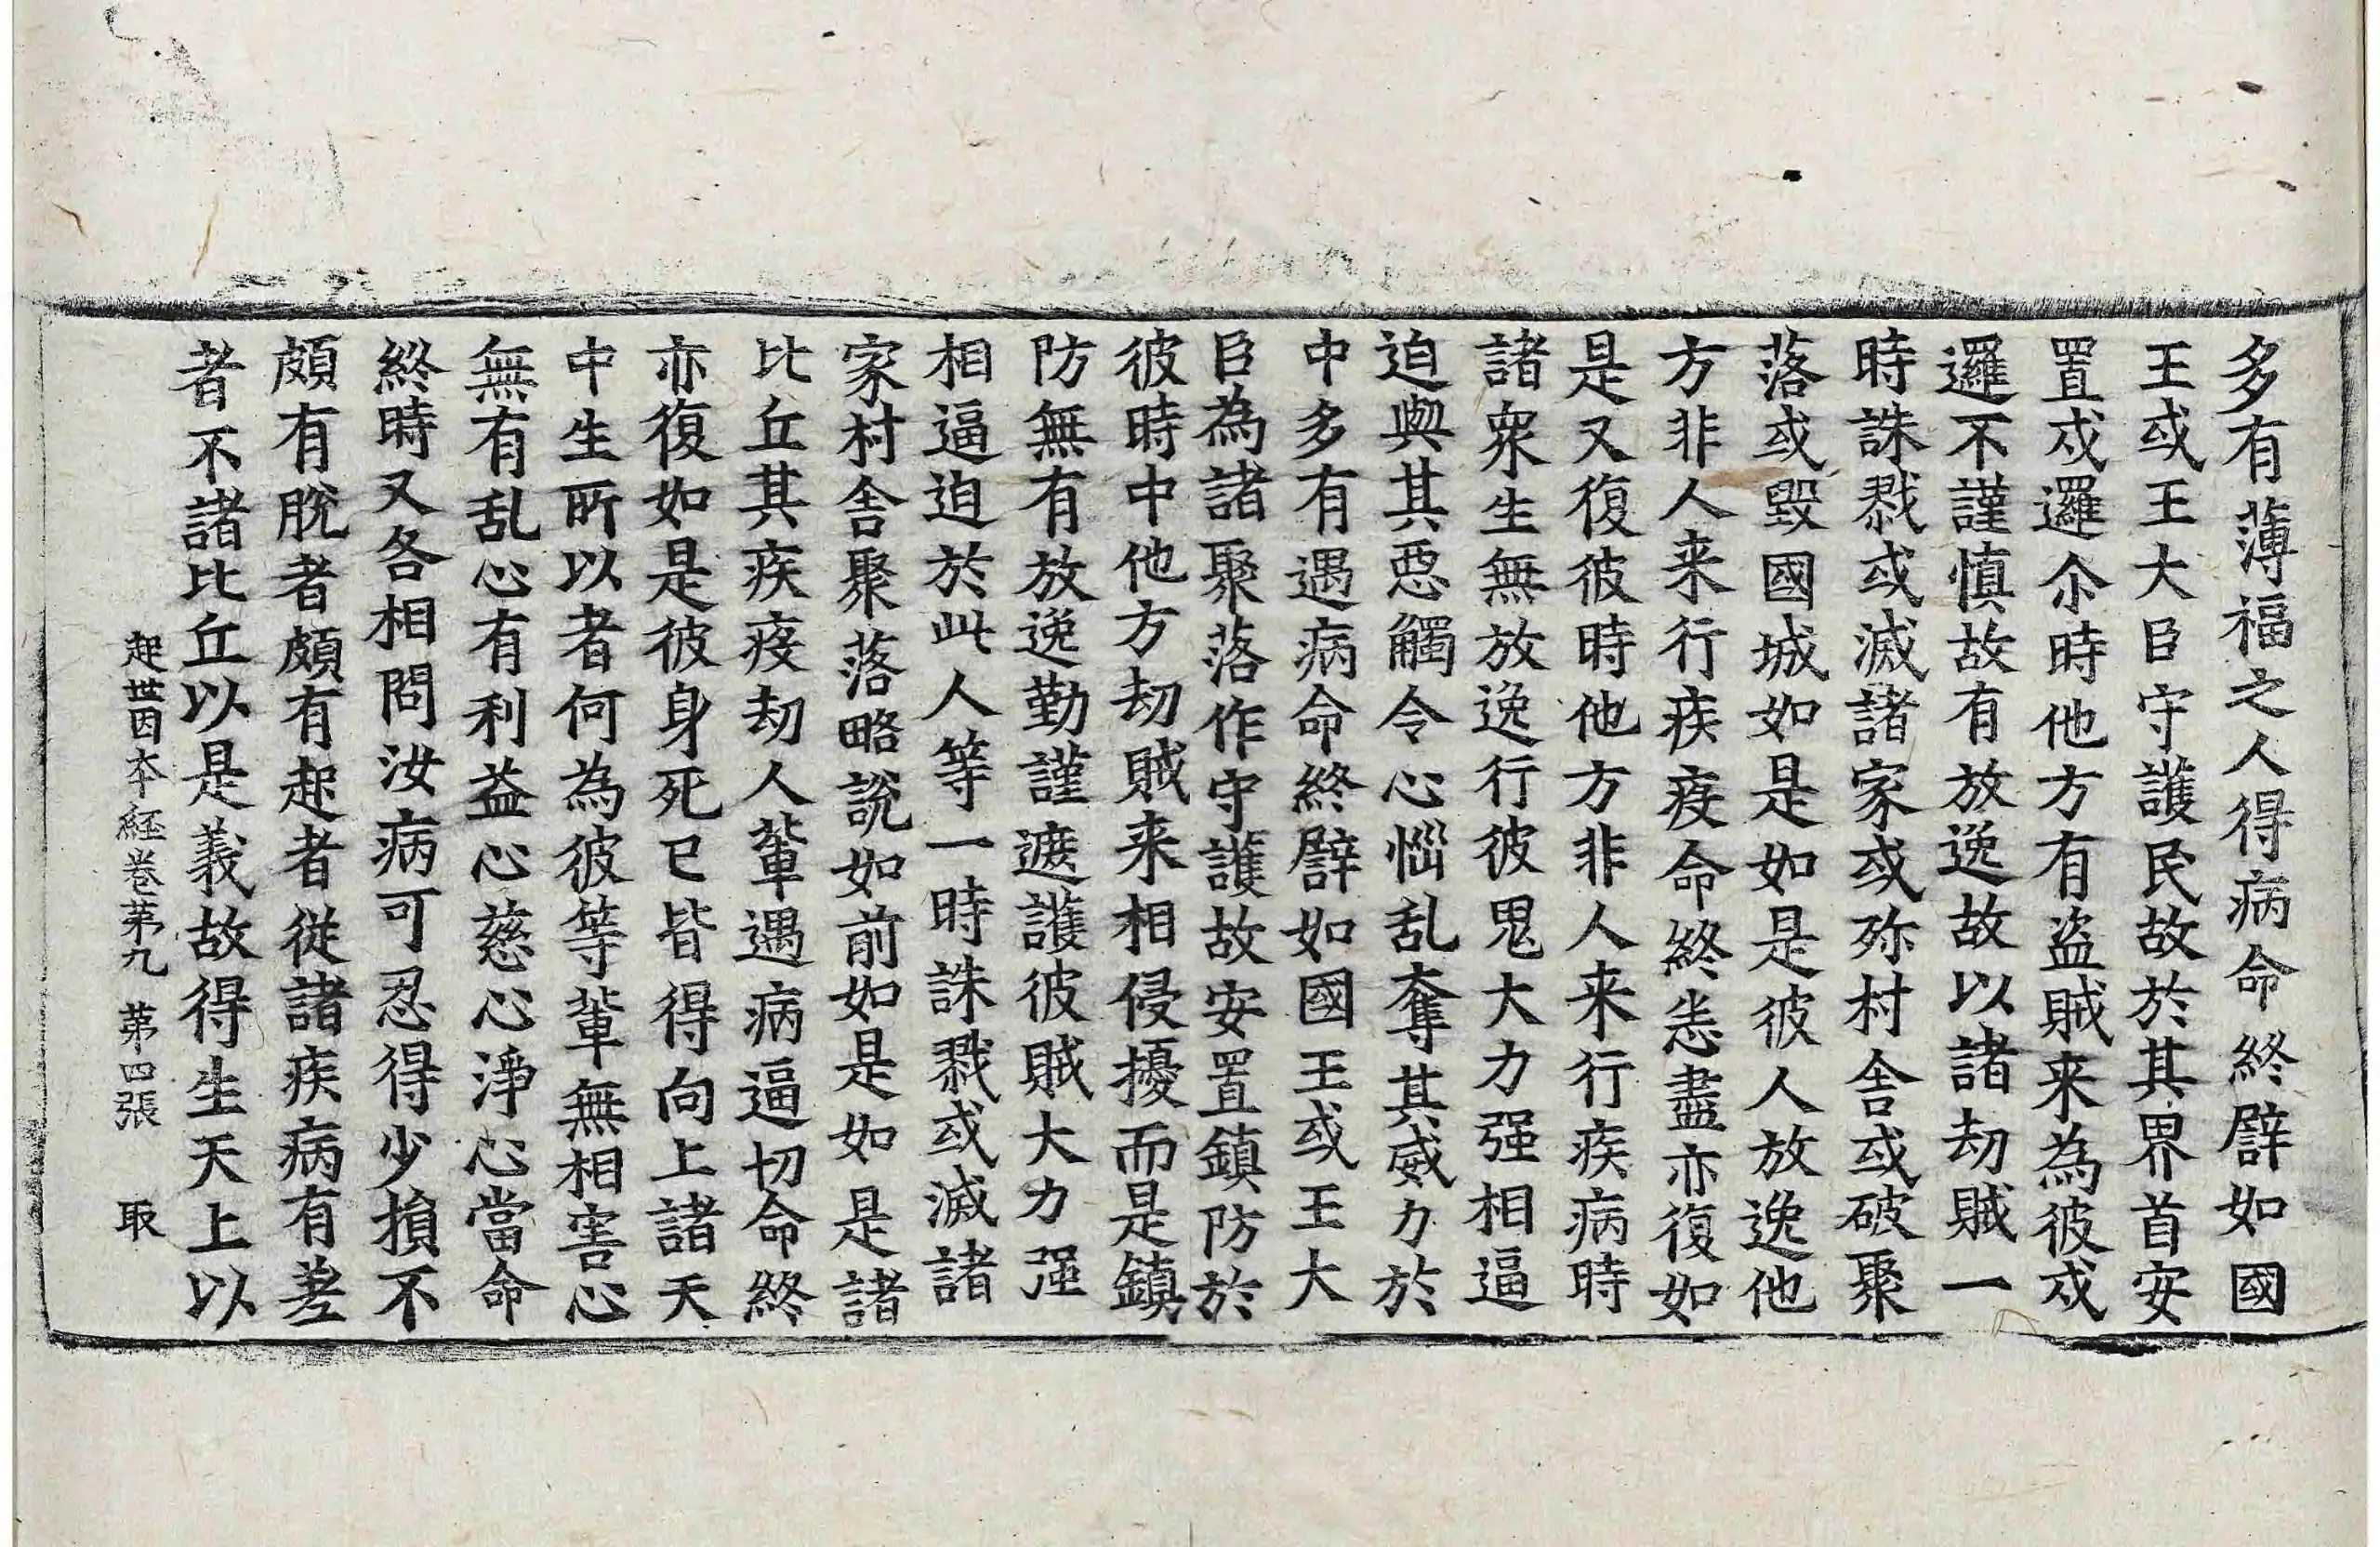 多有薄福之人得病命終譬如國
王或王大臣守護民故於其界首安
置戍邏尒時他方有盜賊来為彼戍
邏不謹慎故有放逸故以諸劫賊一
時誅戮或滅諸家或殄村舎或破聚
落或毀國城如是如是彼人放逸他
方非人来行疾疫命終恙盡亦復如
是又復彼時他方非人来行疾病時
諸衆生無放逸行彼鬼大力强相逼
迫與其惡觸令心惱乱奪其威力於
中多有遇病命終譬如國王或王大
臣為諸聚落作守護故安置鎮防於
彼時中他方劫賊来相侵擾而是鎮
防無有放逸勤謹遮護彼賊大力强
相逼迫於此人等一時誅戮或滅諸
家村舎聚落略說如前如是如是諸
比丘其疾疫劫人軰遇病逼切命終
亦復如是彼身死已皆得向上諸天
中生所以者何為彼等軰無相害心
無有乱心有利益心慈心淨心當命
終時又各相問汝病可忍得少損不
頗有脫者頗有起者從諸疾病有差
者不諸比丘以是義故得生天上以
起世因本經卷苐九　苐四張　取